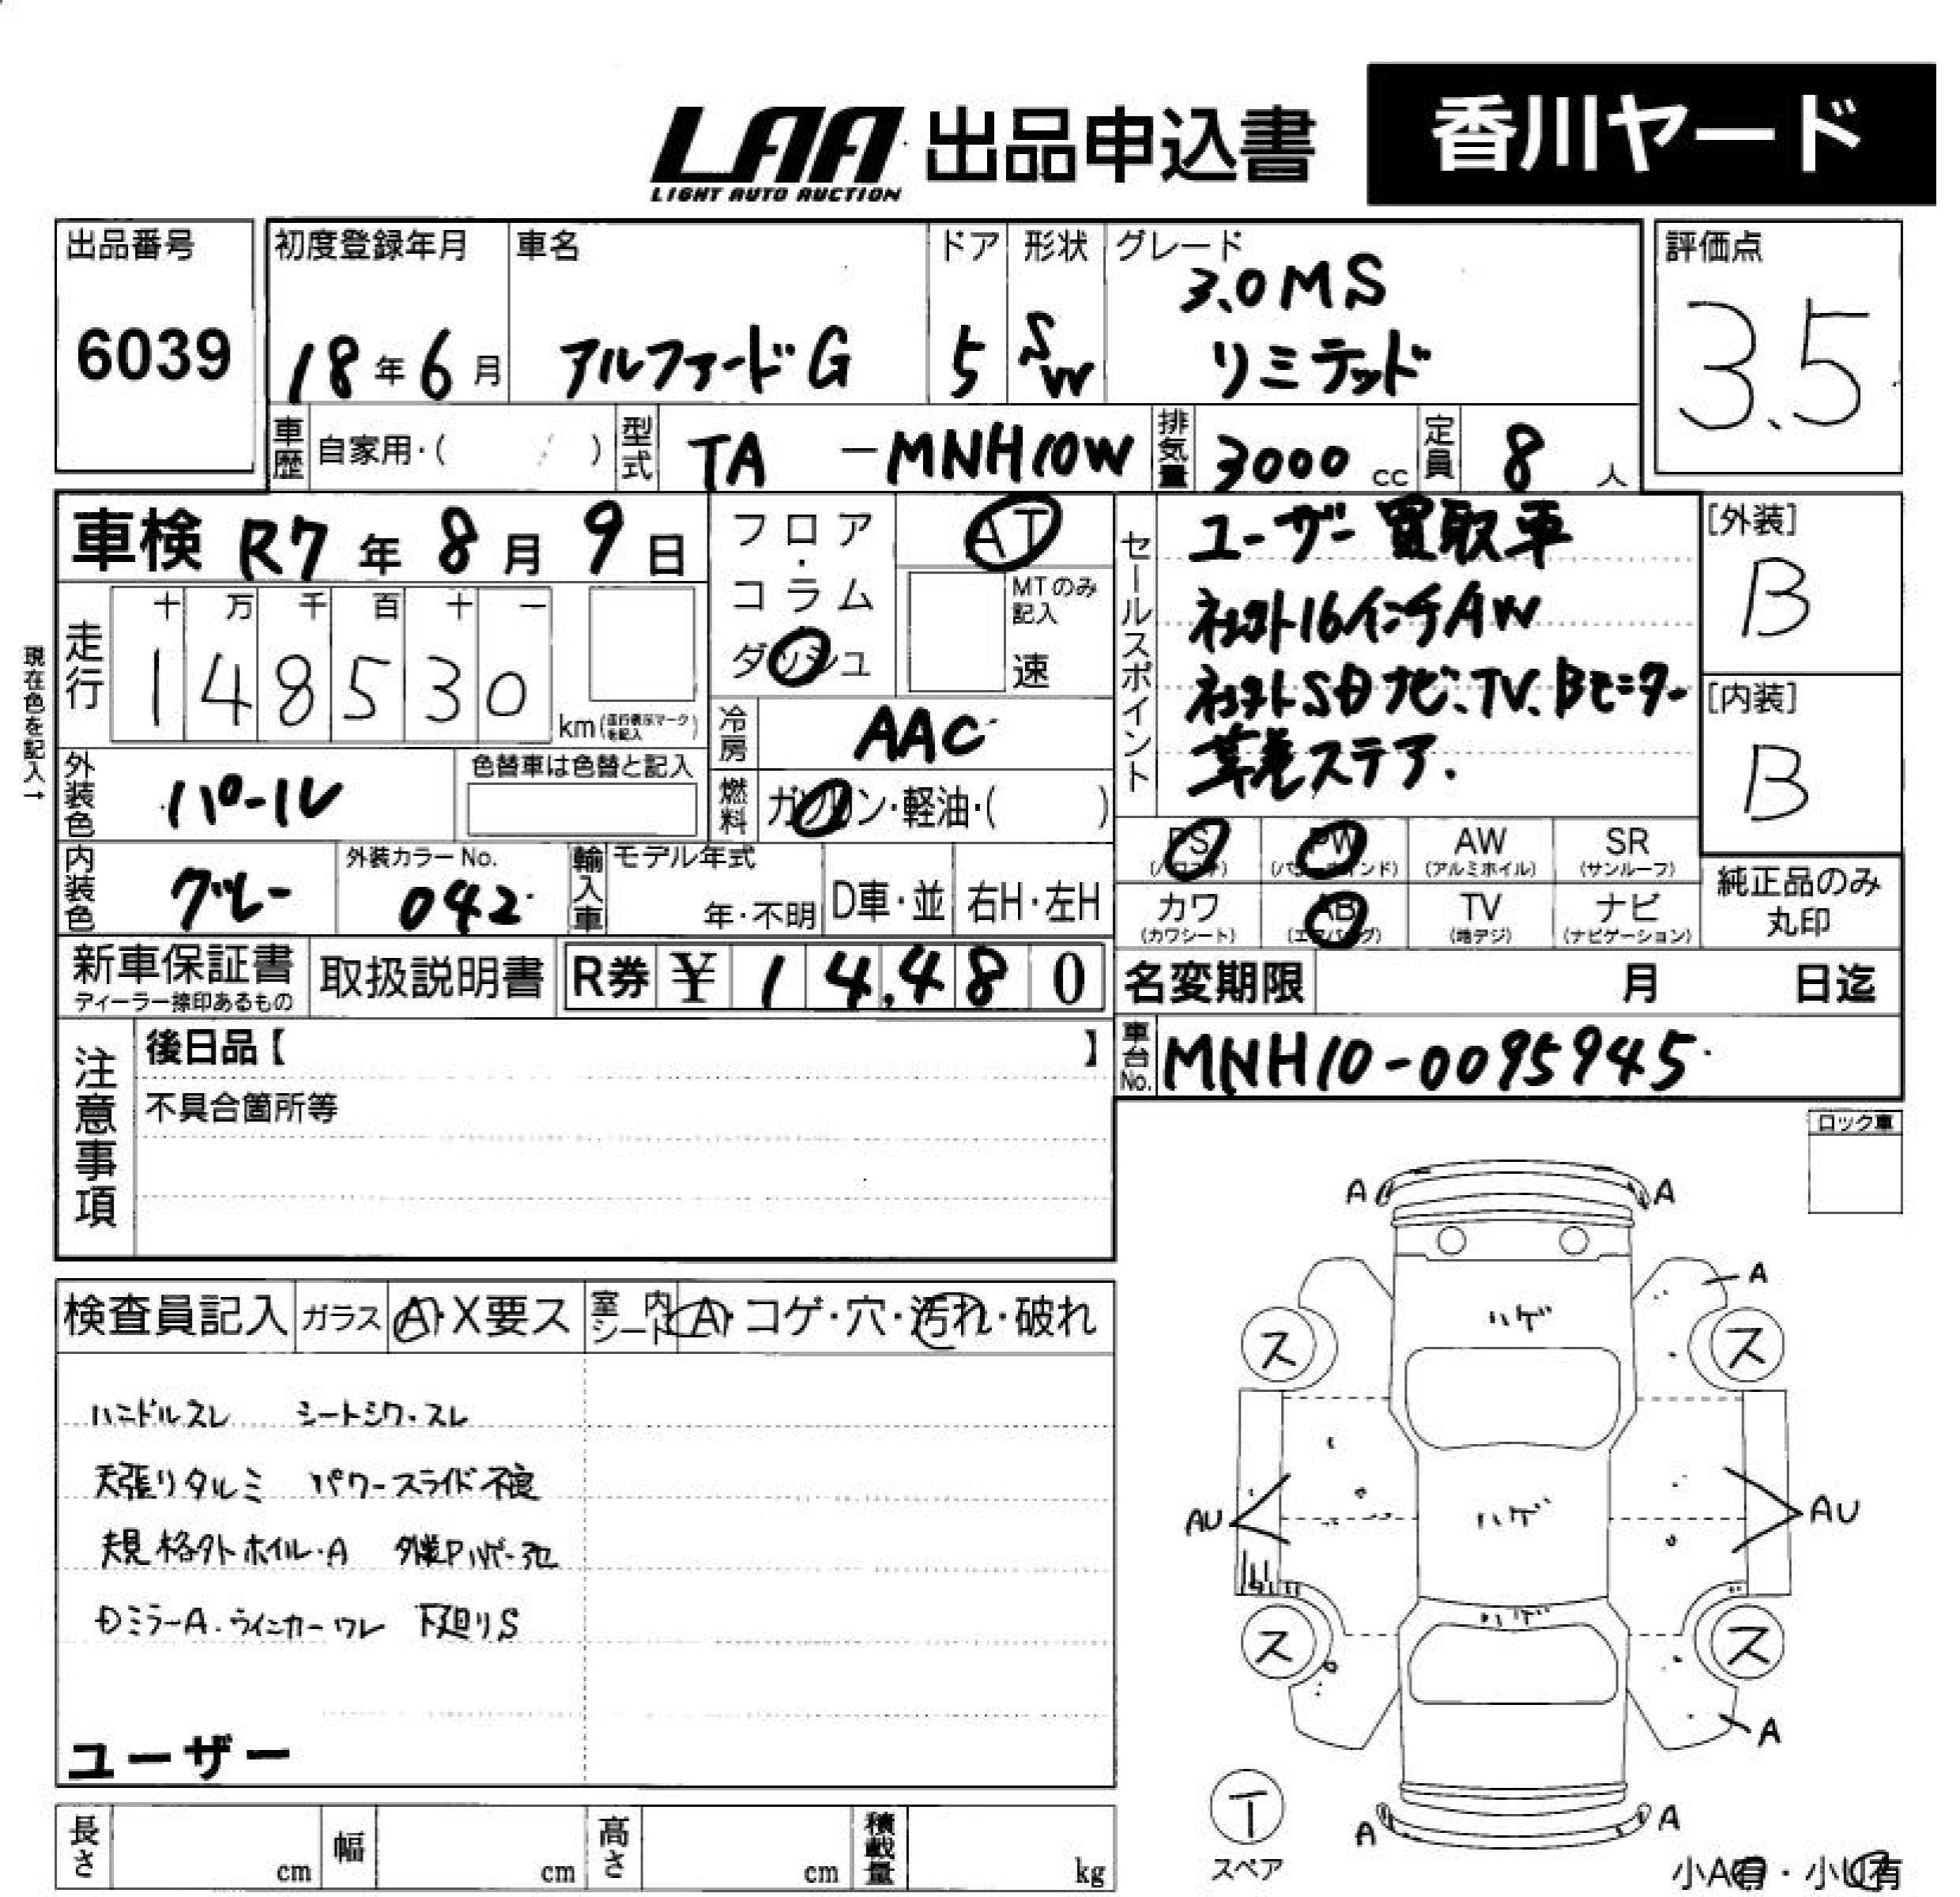 LAA 出品申込書 香川ヤード
LIGHT AUTO AUCTION
出品番号 初度登録年月 車名 ドア 形状 グレード 評価点
6039 18年6月 アルファードG 5 SW 3.0MS リミテッド 3.5
車歴 自家用・( ) 型式 TA -MNH10W 排気量 3000 cc 定員 8 人
車検 R7年 8月 9日
フロア・コラム ダッシュ
AT
MTのみ記入
速
セールスポイント
ユーザー買取車
社外16インチAW
社外SDナビ、TV、Bモニター
革巻ステア.
[外装]
B
[内装]
B
現在色を記入↑
走行 十 万 千 百 十 一
1 4 8 5 3 0 km(走行表示マークを記入)
冷房 AAC
外装色 パール 色替車は色替と記入
燃料 ガソリン・軽油・( )
内装色 グレー 外装カラーNo. 042
輸入車 モデル年式 年・不明 D車・並 右H・左H
PS PW AW SR
(パワステ) (パワーウインド) (アルミホイル) (サンルーフ)
カワ AB TV ナビ
(カワシート) (エアバッグ) (地デジ) (ナビゲーション)
純正品のみ
丸印
新車保証書 取扱説明書 R券 ¥ 1 4,4 8 0
ディーラー捺印あるもの
名変期限 月 日迄
車台No. MNH10-0095945
注意事項
後日品【 】
不具合箇所等
ロック車
検査員記入 ガラス A・X要ス 室内シート A・コゲ・穴・汚れ・破れ
ハンドルスレ シートシワ・スレ
天張りタルミ パワースライド不良
規格外ホイル・A
Dミラー A.ウインカーワレ 下廻りS
ユーザー
A A
A
ハゲ
ス ス
AU ハゲ AU
ハゲ
ス ス
A
T
スペア
A A
小A有・小U有
長さ cm 幅 cm 高さ cm 積載量 kg